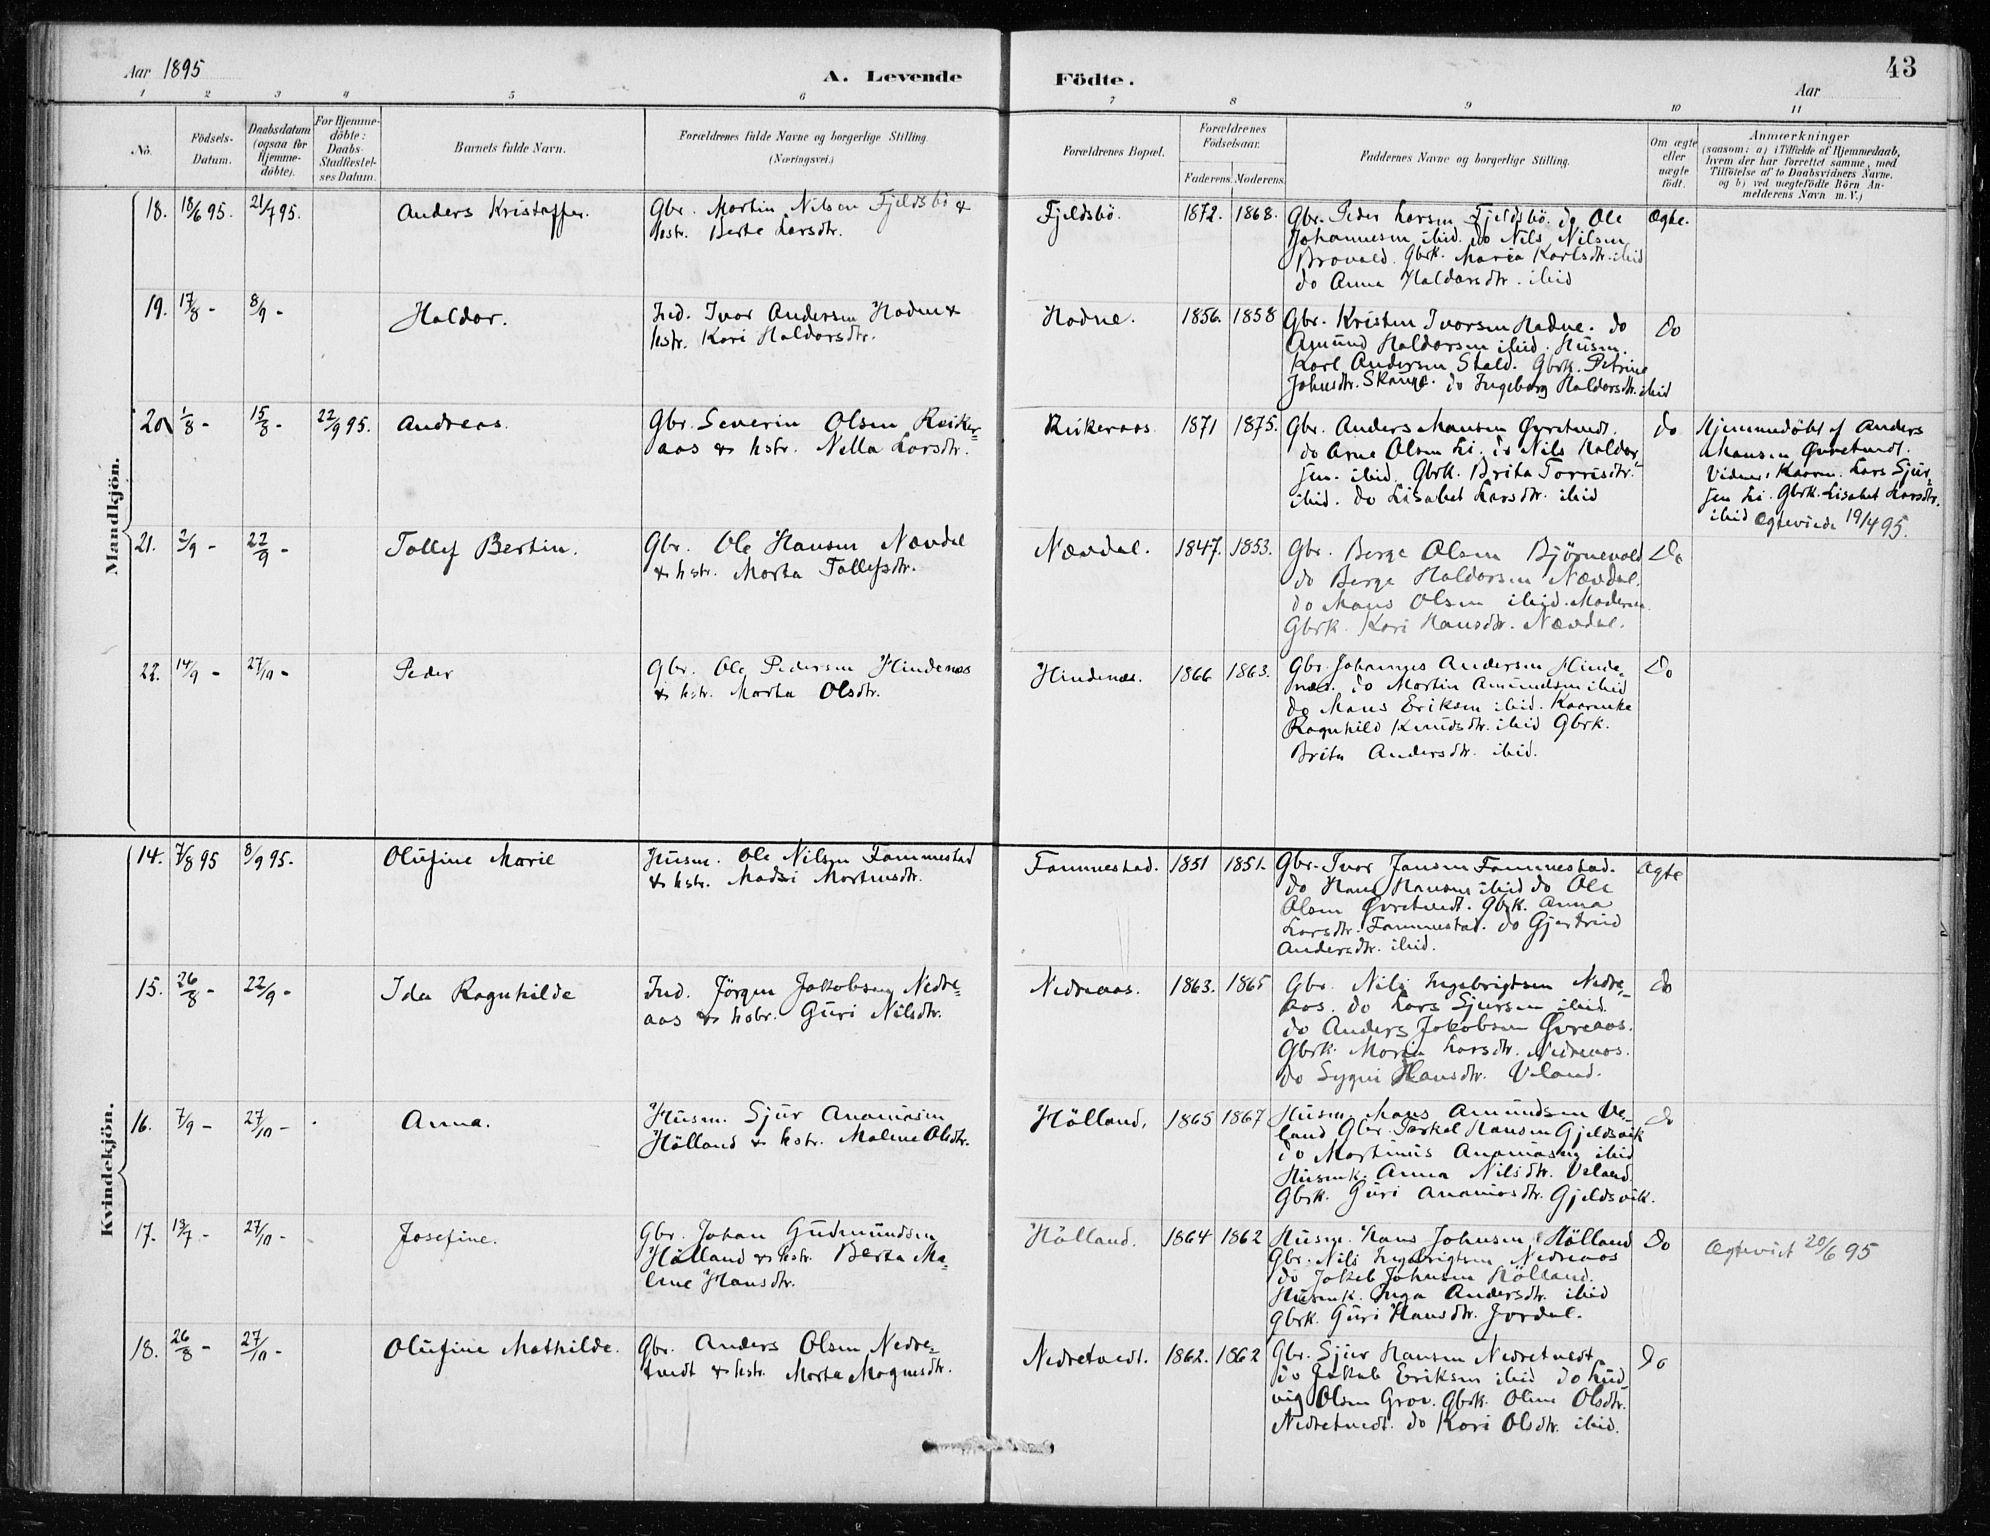 43
Aar 1895
A. Levende Födte.
Aar
1 2 3 4 5 6 7 8 9 10 11
No.
Födsels-Datum.
Daabsdatum (ogsaa for Hjemme-döbte).
For Hjemme-döbte: Daabs-Stadfæstel-ses Datum.
Barnets fulde Navn.
Forældrenes fulde Navne og borgerlige Stilling. (Næringsvei.)
Forældrenes Bopæl.
Forældrenes Födselsaar.
Faderens. Moderens.
Faddernes Navne og borgerlige Stilling.
Om ægte eller uægte födt.
Anmærkninger
(saasom: a) i Tilfælde af Hjemmedaab,
hvem der har forrettet samme, med
Tilföielse af to Daabsvidners Navne,
og b) ved uægtefödte Börn An-
melderens Navn m.V.)
Mandkjön.
18. 18/6 95. 21/7 95. Anders Kristoffer.
Gbr. Martin Nilsen Fjeldsbö &
hstr. Berta Larsdtr.
Fjeldsbö. 1872. 1868.
Gbr. Peder Larsen Fjeldsbö. do Ole
Johannesen ibid. do Nils Nilsen
Bravold. Gbrk. Maria Karlsdtr. ibid
do Anna Haldorsdtr. ibid
Ægte.
19. 17/8 - 8/9 - Haldor.
Ind. Ivar Andersen Hadne &
hstr. Kari Haldorsdtr.
Hadne. 1856. 1858
Gbr. Kristen Ivarsen Hadne. do
Amund Haldorsen ibid. Husm.
Karl Andersen Stald. Gbrk. Petrine
Johnsdtr. Skange. do Ingeborg Haldorsdtr. ibid
do
20. 1/8 - 15/8 - 22/9 95. Andreas.
Gbr. Severin Olsen Reiker-
aas & hstr. Nella Larsdtr.
Reikeraas 1871 1875.
Gbr. Anders Mansen Øvretvedt.
do Arne Olsen Li. do Nils Haldor
sen. ibid. Gbrk. Brita Torrisdtr.
ibid. do Lisabet Larsdtr. ibid
do
Hjemmedöbt af Anders
Mansen Øvretvedt.
Vidner: Kaarm. Lars Sjur-
sen Li. Gbrk. Lisabet Larsdtr.
ibid Ægteviede 19/4 95.
21. 2/9 - 22/9 - Tollef Bertin.
Gbr. Ole Hansen Nævdal
& hstr. Marta Tollefsdtr.
Nævdal. 1847. 1853.
Gbr. Berge Olsen Björnevold
do Berge Haldorsen Nævdal.
do Mans Olsen ibid. Moderen
Gbrk. Kari Hansdtr. Nævdal.
Do
22. 14/9 - 27/10 - Peder
Gbr. Ole Pedersen Hindenæs
& hstr. Marta Olsdtr.
Hindenæs. 1866 1863.
Gbr. Johannes Andersen Hinde-
næs. do Martin Amundsen ibid
do Mans Eriksen ibid. Kaarenke
Ragnhild Knudsdtr. ibid Gbrk.
Brita Andersdtr. ibid.
Do
Kvindekjön.
14. 7/8 95 8/9 95. Olufine Marie
Husm. Ole Nilsen Fammestad
& hstr. Madsi Martinsdtr.
Fammestad. 1851 1851.
Gbr. Ivar Jansen Fammestad.
do Hans Hansen ibid do Ole
Olsen Øvretvedt. Gbrk. Anna
Larsdtr. Fammestad. do Gjertrud
Andersdtr. ibid.
Ægte
15. 26/8 - 22/9 - Ida Ragnhilde
Ind. Jörgen Jakobsen Nedre-
aas & hstr. Guri Nilsdtr.
Nedreaas. 1863. 1865
Gbr. Nils Ingebrigtsen Nedre-
aas. do Lars Sjursen ibid.
do Anders Jakobsen Øvreaas.
Gbrk. Maria Larsdtr. Nedreaas.
do Sygni Hansdtr. Veland.
do
16. 7/9 - 27/10 - Anna.
Husm. Sjur Ananiasen
Hölland & hstr. Malene Olsdtr.
Hölland. 1865 1867
Husm. Mans Amundsen Ve-
land Gbr. Torkel Hansen Gjeldsvik
do Martinus Ananiasen ibid
Husmk. Anna Nilsdtr. Veland.
Gbrk. Guri Ananiasdtr. Gjeldsvik.
do
17. 13/7 - 27/10 - Josefine.
Gbr. Johan Gudmundsen
Hölland & hstr. Berta Ma-
lene Hansdtr.
Hölland. 1864 1862
Husm. Hans Johnsen Hölland
Gbr. Nils Ingebrigtsen Nedreaas
do Jakob Johnsen Hölland.
Husmk. Inga Andersdtr. ibid
Gbrk. Guri Hansdtr. Jordal.
Do
Ægteviet 20/6 95
18. 26/8 - 27/10 - Olufine Mathilde.
Gbr. Anders Olsen Nedre-
tvedt & hstr. Marta Magnesdtr.
Nedretvedt. 1862. 1862
Gbr. Sjur Hansen Nedretvedt
do Jakob Eriksen ibid do Lud
vig Olsen Grov. Gbrk. Oline Olsdtr.
Nedretvedt. do Kari Olsdtr. ibid.
Do